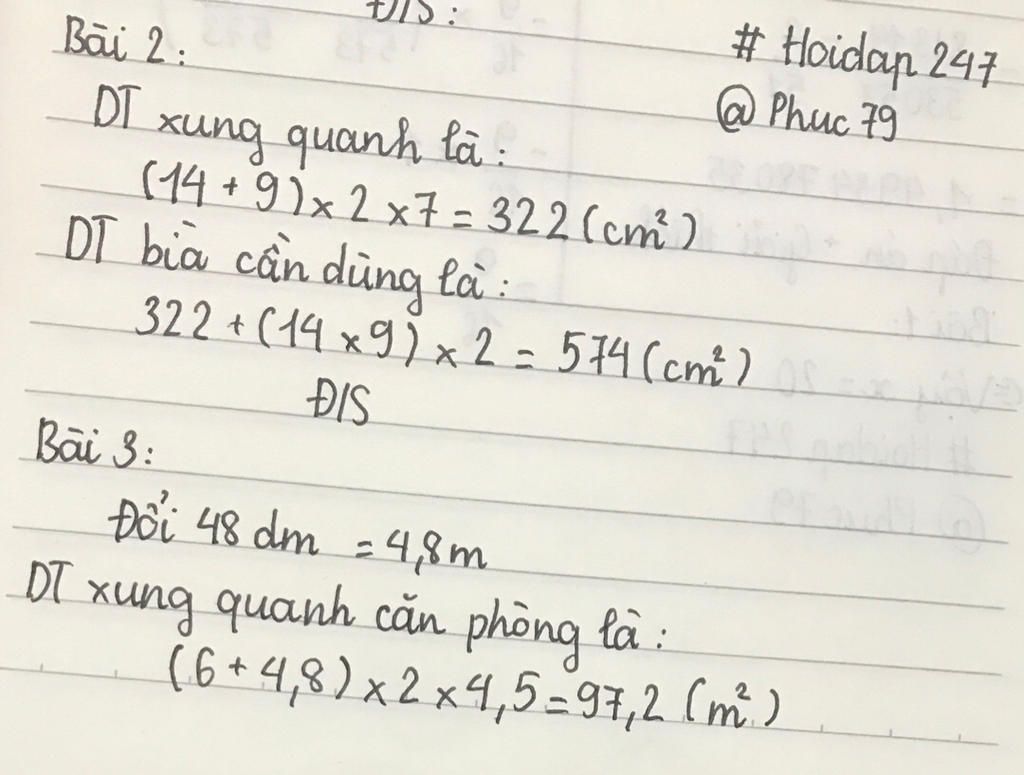 Đ/S:
Bài 2:
# Hoidap 247
@ Phuc 79
DT xung quanh là:
(14 + 9) x 2 x 7 = 322 (cm²)
DT bìa cần dùng là:
322 + (14 x 9) x 2 = 574 (cm²)
Đ/S
Bài 3:
Đổi 48 dm = 4,8 m
DT xung quanh căn phòng là:
(6 + 4,8) x 2 x 4,5 = 97,2 (m²)